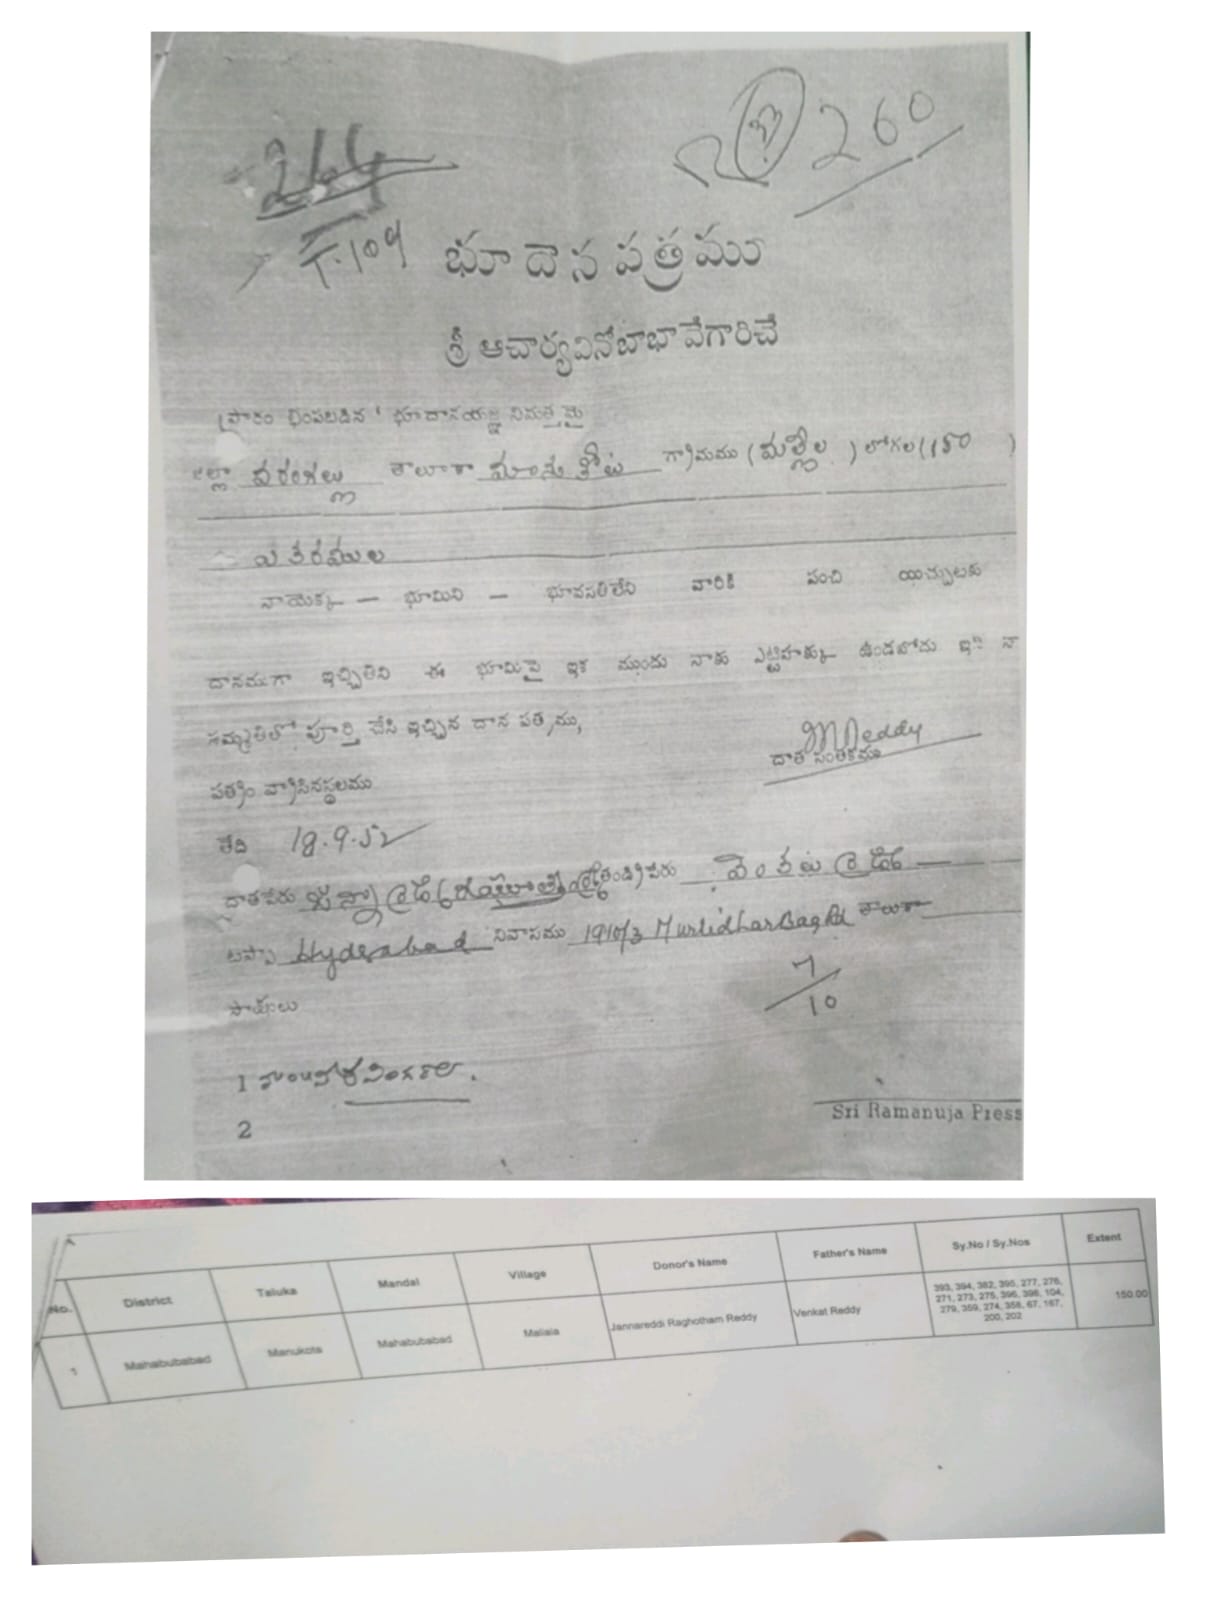 264
33 260
T.109
భూదాన పత్రము
శ్రీ ఆచార్యవినోబాభావేగారిచే
ప్రారంభింపబడిన 'భూదానయజ్ఞ నిమిత్తమై
జిల్లా వరంగల్లు తాలూకా మానుకోట గ్రామము (మల్లేల ) లోగల (150 )
ఎకరముల
నాయొక్క — భూమిని — భూవసతిలేని వారికి పంచి యిచ్చుటకు
దానముగా ఇచ్చితిని ఈ భూమిపై ఇక ముందు నాకు ఎట్టిహక్కు ఉండబోదు ఇది నా
సమ్మతితో పూర్తి చేసి ఇచ్చిన దాన పత్రము,
దాత సంతకము
పత్రం వ్రాసినస్థలము
తేది 18.9.52
దాతపేరు తండ్రిపేరు వెంకట రెడ్డి
టప్పా Hyderabad నివాసము 1910/3 Murlidhar Bagh తాలూకా
7/10
సాక్షులు
1
2
Sri Ramanuja Press
No. District Taluka Mandal Village Donor's Name Father's Name Sy.No / Sy.Nos Extent
1 Mahabubabad Manukota Mahabubabad Maliala Jannareddi Raghotham Reddy Venkat Reddy 393, 394, 382, 395, 277, 276, 150.00
271, 273, 275, 396, 398, 104,
279, 359, 274, 358, 67, 167,
200, 202